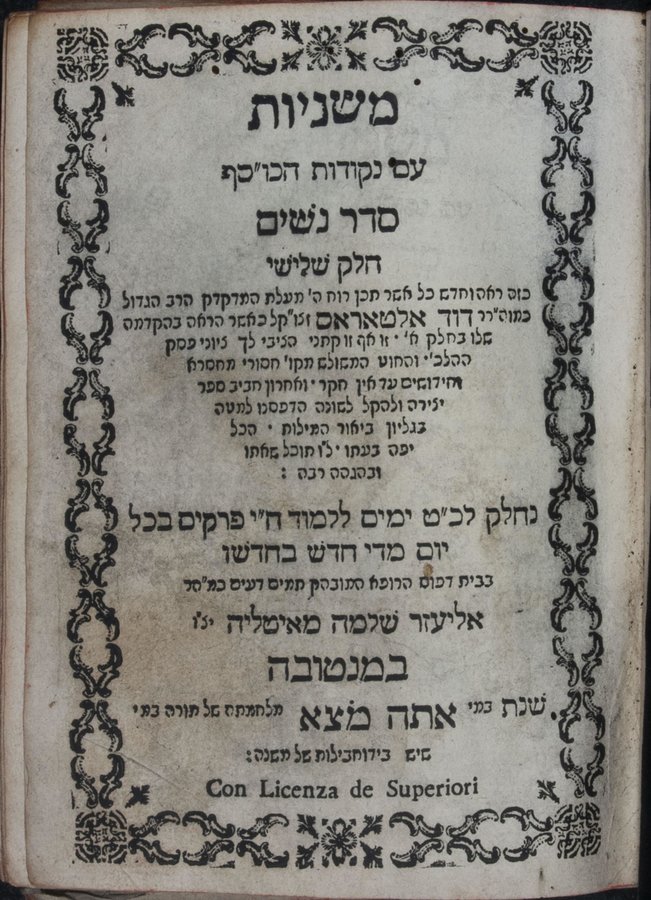 משניות
עם נקודות הכו״כף
סדר נשים
חלק שלישי
כזה ראה וחדש כל אשר תכן רוח ה׳ מעלת המדקדק הרב הגדול
כמוה״רר דוד אלטאראס זצו״קל כאשר הראה בהקדמה
שלו בחלק א׳ · זו אף זו קתני הציבי לך ציוני פסק
ההלכ׳ · והחוט המשולש מקו׳ חסורי מחסרא
וחידושים עד אין חקר · ואחרון חביב ספר
יצירה ולהקל לשונה הדפסנו למטה
בגליון ביאור המילות · הכל
יפה בעתו · ל״ו תוכל שאתו
ובהנהה רבה :
נחלק לכ״ט ימים ללמוד ח״י פרקים בכל
יום מדי חדש בחדשו
בבית דפוס הרופא המובהק תמים דעים כמ״הר
אליעזר שלמה מאיטליה יצ״ו
במנטובה
שנת במי אתה מצא מלחמתה של תורה במי
שיש בידו חבילות של משנה :
Con Licenza de Superiori